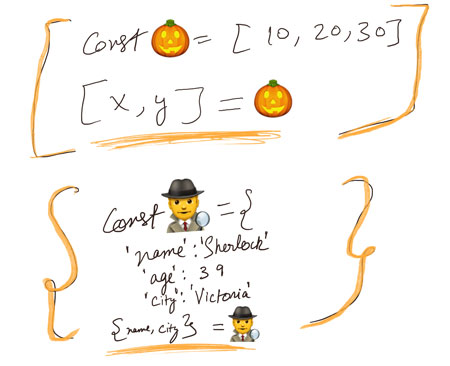 const 🎃 = [10, 20, 30]
[x, y] = 🎃
const 🕵️ = {
'name': 'Sherlock'
'age': 39
'city': 'Victoria'
{name, city} = 🕵️